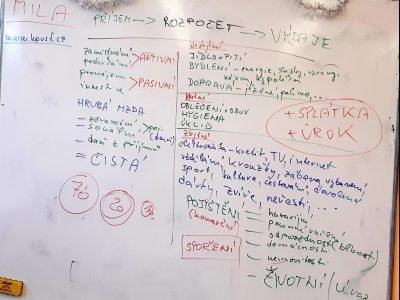 MILA
www.kpvsp.cz
PŘÍJEM → ROZPOČET → VÝDAJE
zaměstnání
podnikání > AKTIVNÍ
pronájem
investice > PASIVNÍ
HRUBÁ MZDA
- zdravotní
- sociální > poj.
- daň z příjmu (daně)
= ČISTÁ
70 20
Nezbytné
JÍDLO + PITÍ
BYDLENÍ - energie, služby, opravy,
nájem, hypotéka
DOPRAVA - jízdné, palivo, ...
Nutné
OBLEČENÍ + OBUV
HYGIENA
ÚKLID
+ SPLÁTKA
+ ÚROK
Zbytné
elektronika - kredit, TV, internet
vzdělání, kroužky, zábava, vybavení
sport, kultura, cestování, dovolená
dárky, zvíře, neřesti, ...
POJIŠTĚNÍ
- havarijní
- povinné ručení
- odpovědnosti (blbost)
- domácnosti
- nemovitosti
- ŽIVOTNÍ / úraz
SPOŘENÍ